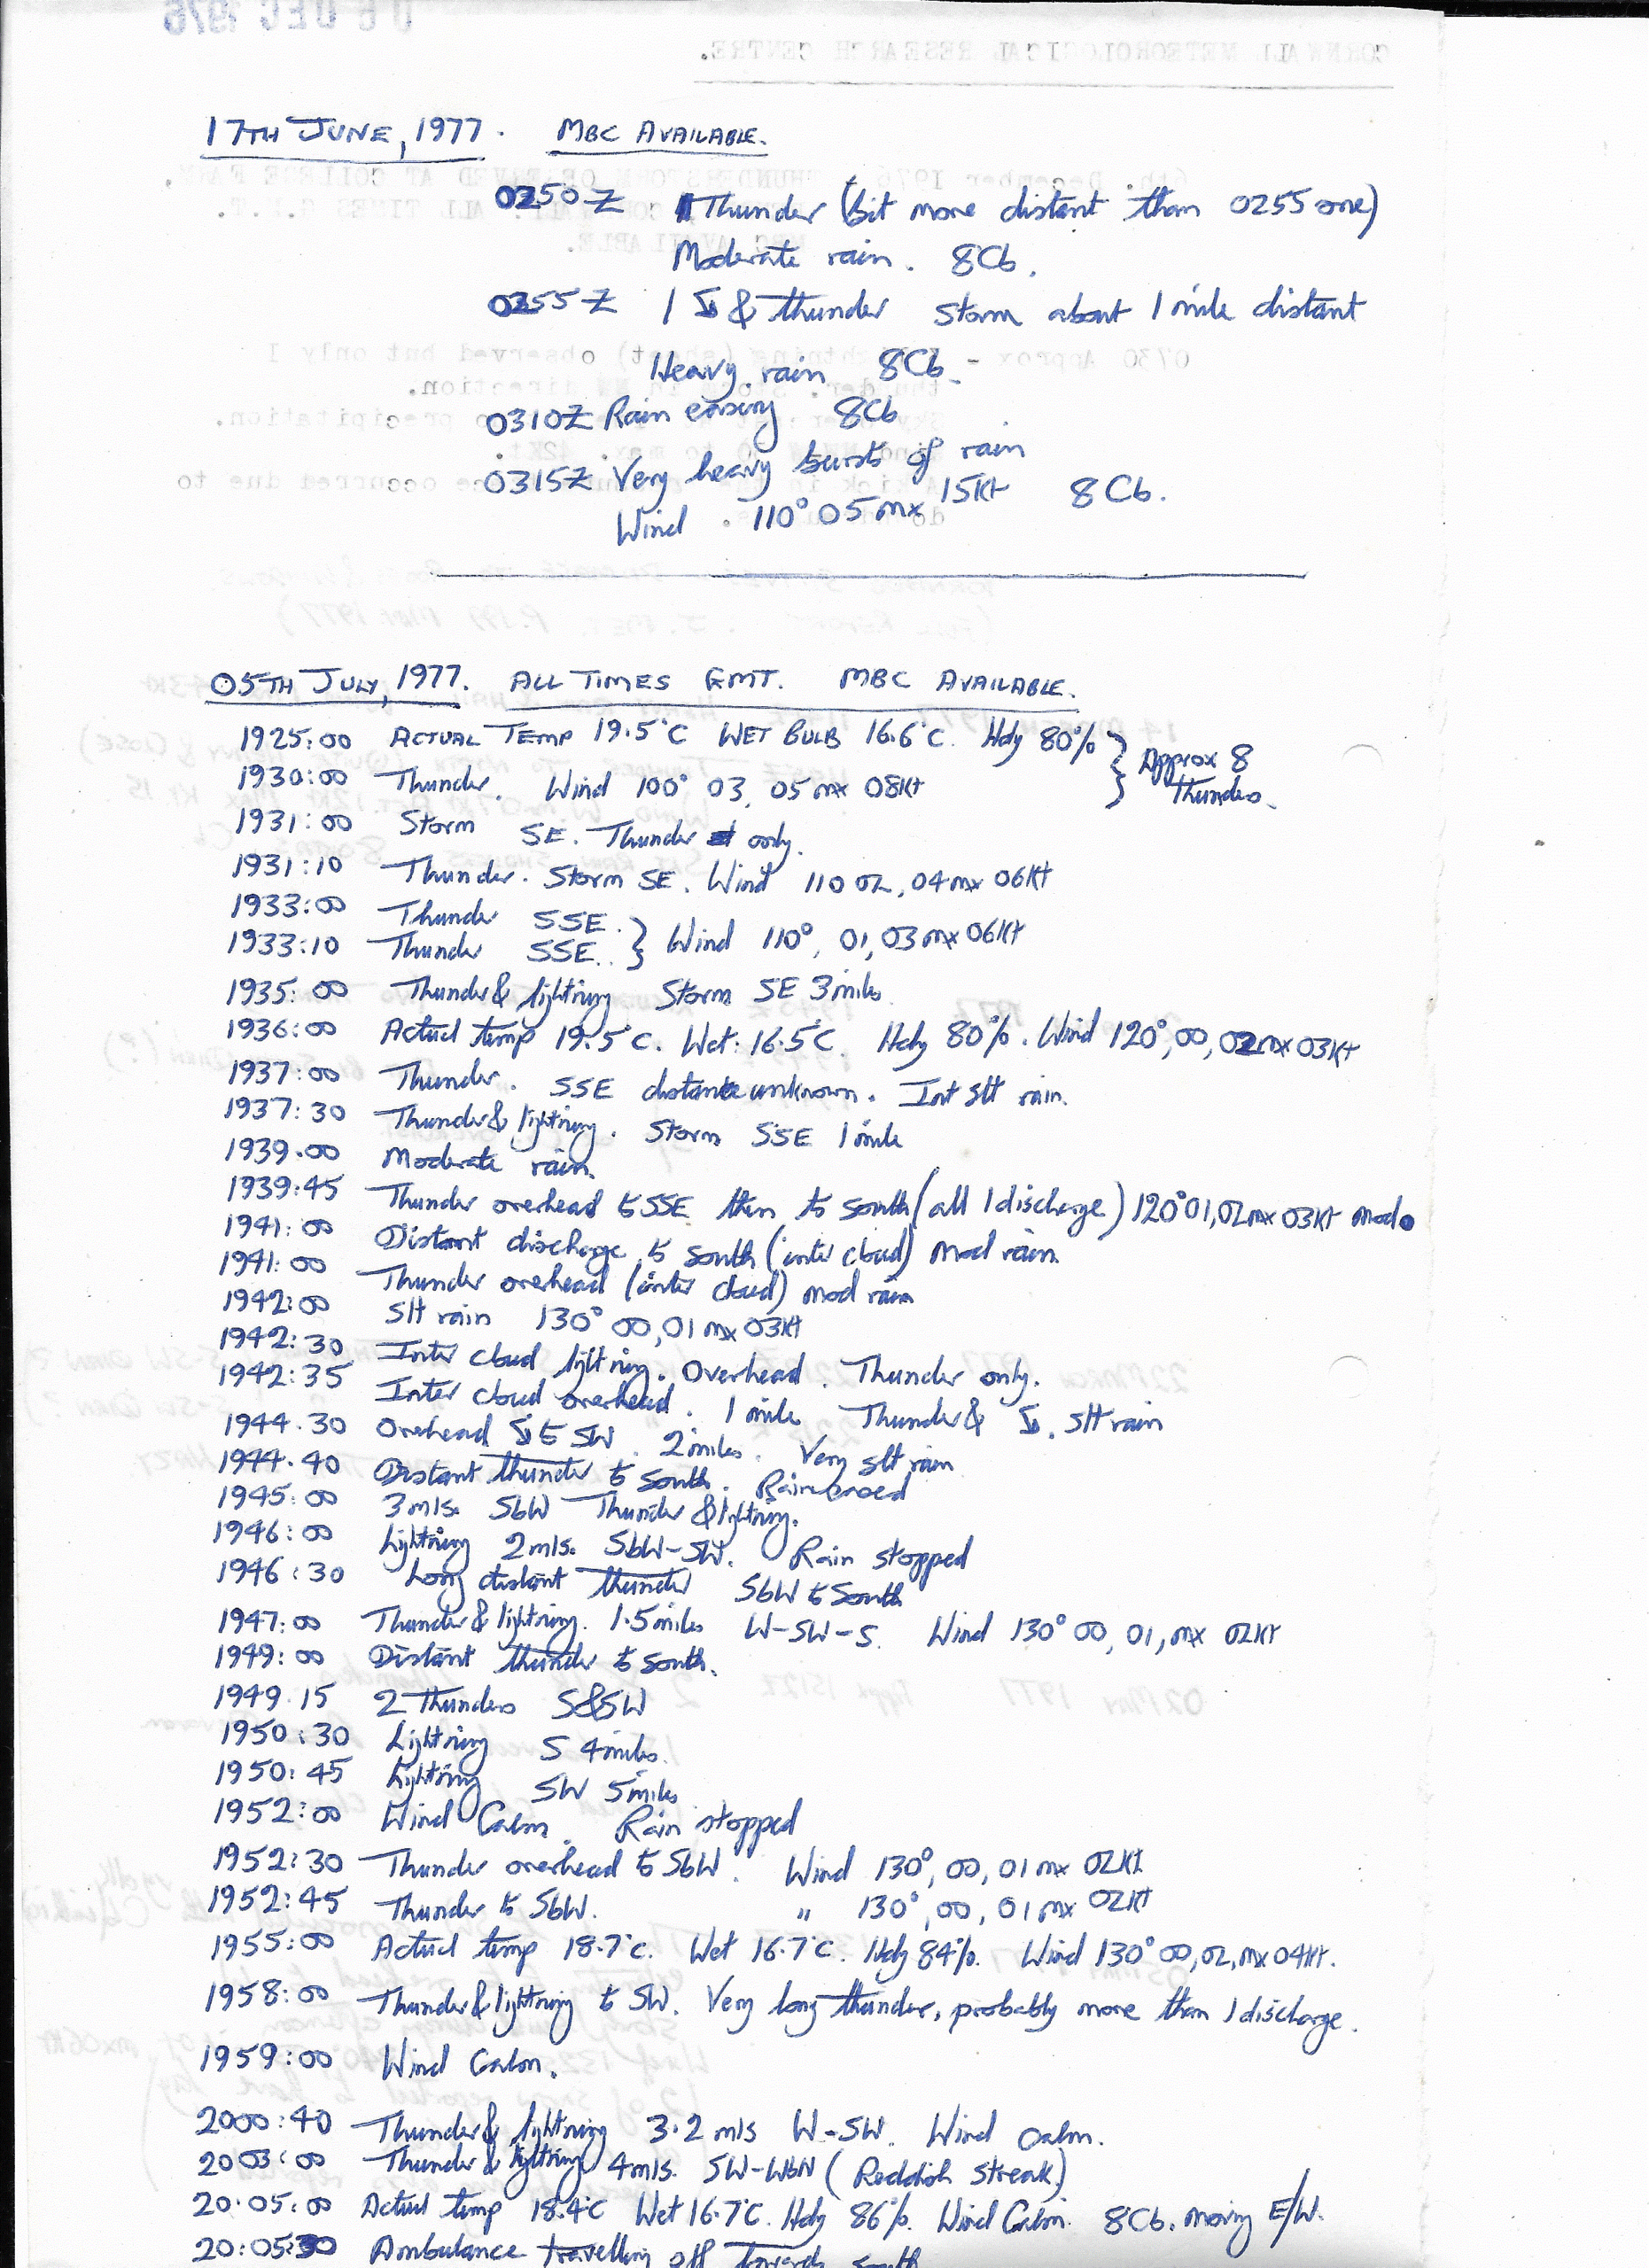 17TH JUNE, 1977. MBC AVAILABLE.
0250Z Thunder (bit more distant than 0255 one)
Moderate rain. 8Cb.
0255Z 1 ☈ & thunder storm about 1 mile distant
Heavy rain 8Cb.
0310Z Rain easing 8Cb
0315Z Very heavy bursts of rain
Wind 110° 05 mx 15Kt 8Cb.
05TH JULY, 1977. ALL TIMES GMT. MBC AVAILABLE.
1925:00 ACTUAL TEMP 19.5°C WET BULB 16.6°C. Hdy 80% } Approx 8
1930:00 Thunder. Wind 100° 03, 05 mx 08Kt thunders.
1931:00 Storm SE. Thunder only.
1931:10 Thunder. Storm SE. Wind 110 02, 04 mx 06Kt
1933:00 Thunder SSE. } Wind 110°, 01, 03 mx 06Kt
1933:10 Thunder SSE.
1935:00 Thunder & lightning Storm SE 3 miles.
1936:00 Actual temp 19.5°C. Wet: 16.5°C. Hdy 80%. Wind 120°, 00, 02 mx 03Kt
1937:00 Thunder. SSE distance unknown. Int slt rain.
1937:30 Thunder & lightning. Storm SSE 1 mile
1939.00 Moderate rain.
1939:45 Thunder overhead to SSE then to south (all 1 discharge) 120° 01, 02 mx 03Kt mod ●
1941:00 Distant discharge to south (inter cloud) mod rain.
1941:00 Thunder overhead (inter cloud) mod rain
1942:00 Slt rain 130° 00, 01 mx 03Kt
1942:30 Inter cloud lightning. Overhead. Thunder only.
1942:35 Inter cloud overhead. 1 mile Thunder & ☈. Slt rain
1944.30 Overhead ☈ to SW. 2 miles. Very slt rain
1944.40 Distant thunder to south. Rain eased
1945:00 3 mls. SbW Thunder & lightning.
1946:00 Lightning 2 mls. SbW-SW. Rain stopped
1946:30 Long distant thunder SbW to South
1947:00 Thunder & lightning. 1.5 miles W-SW-S. Wind 130° 00, 01, mx 02Kt
1949:00 Distant thunder to south.
1949.15 2 Thunders S & SW
1950:30 Lightning S 4 miles.
1950:45 Lightning SW 5 miles
1952:00 Wind Calm. Rain stopped
1952:30 Thunder overhead to SbW. Wind 130°, 00, 01 mx 02Kt
1952:45 Thunder to SbW. " 130°, 00, 01 mx 02Kt
1955:00 Actual temp 18.7°C. Wet 16.7°C. Hdy 84%. Wind 130° 00, 02, mx 04Kt.
1958:00 Thunder & lightning to SW. Very long thunder, probably more than 1 discharge.
1959:00 Wind Calm.
2000:40 Thunder & lightning 3.2 mls W-SW. Wind calm.
2003:00 Thunder & lightning 4 mls. SW-WbN (Reddish streak)
20.05:00 Actual temp 18.4°C Wet 16.7°C. Hdy 86%. Wind Calm. 8Cb. moving E/W.
20:05:30 Ambulance travelling off towards south